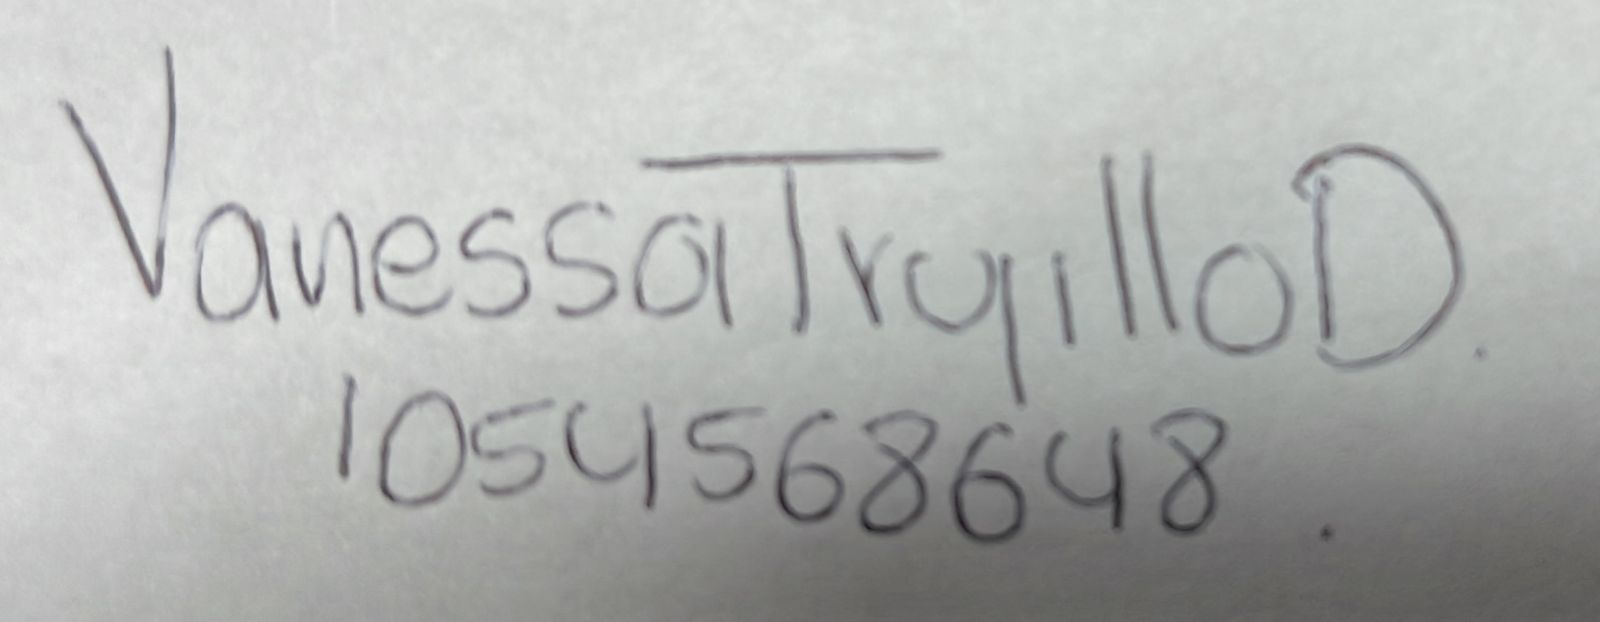 Vanessa Trujillo D.
1054568648.